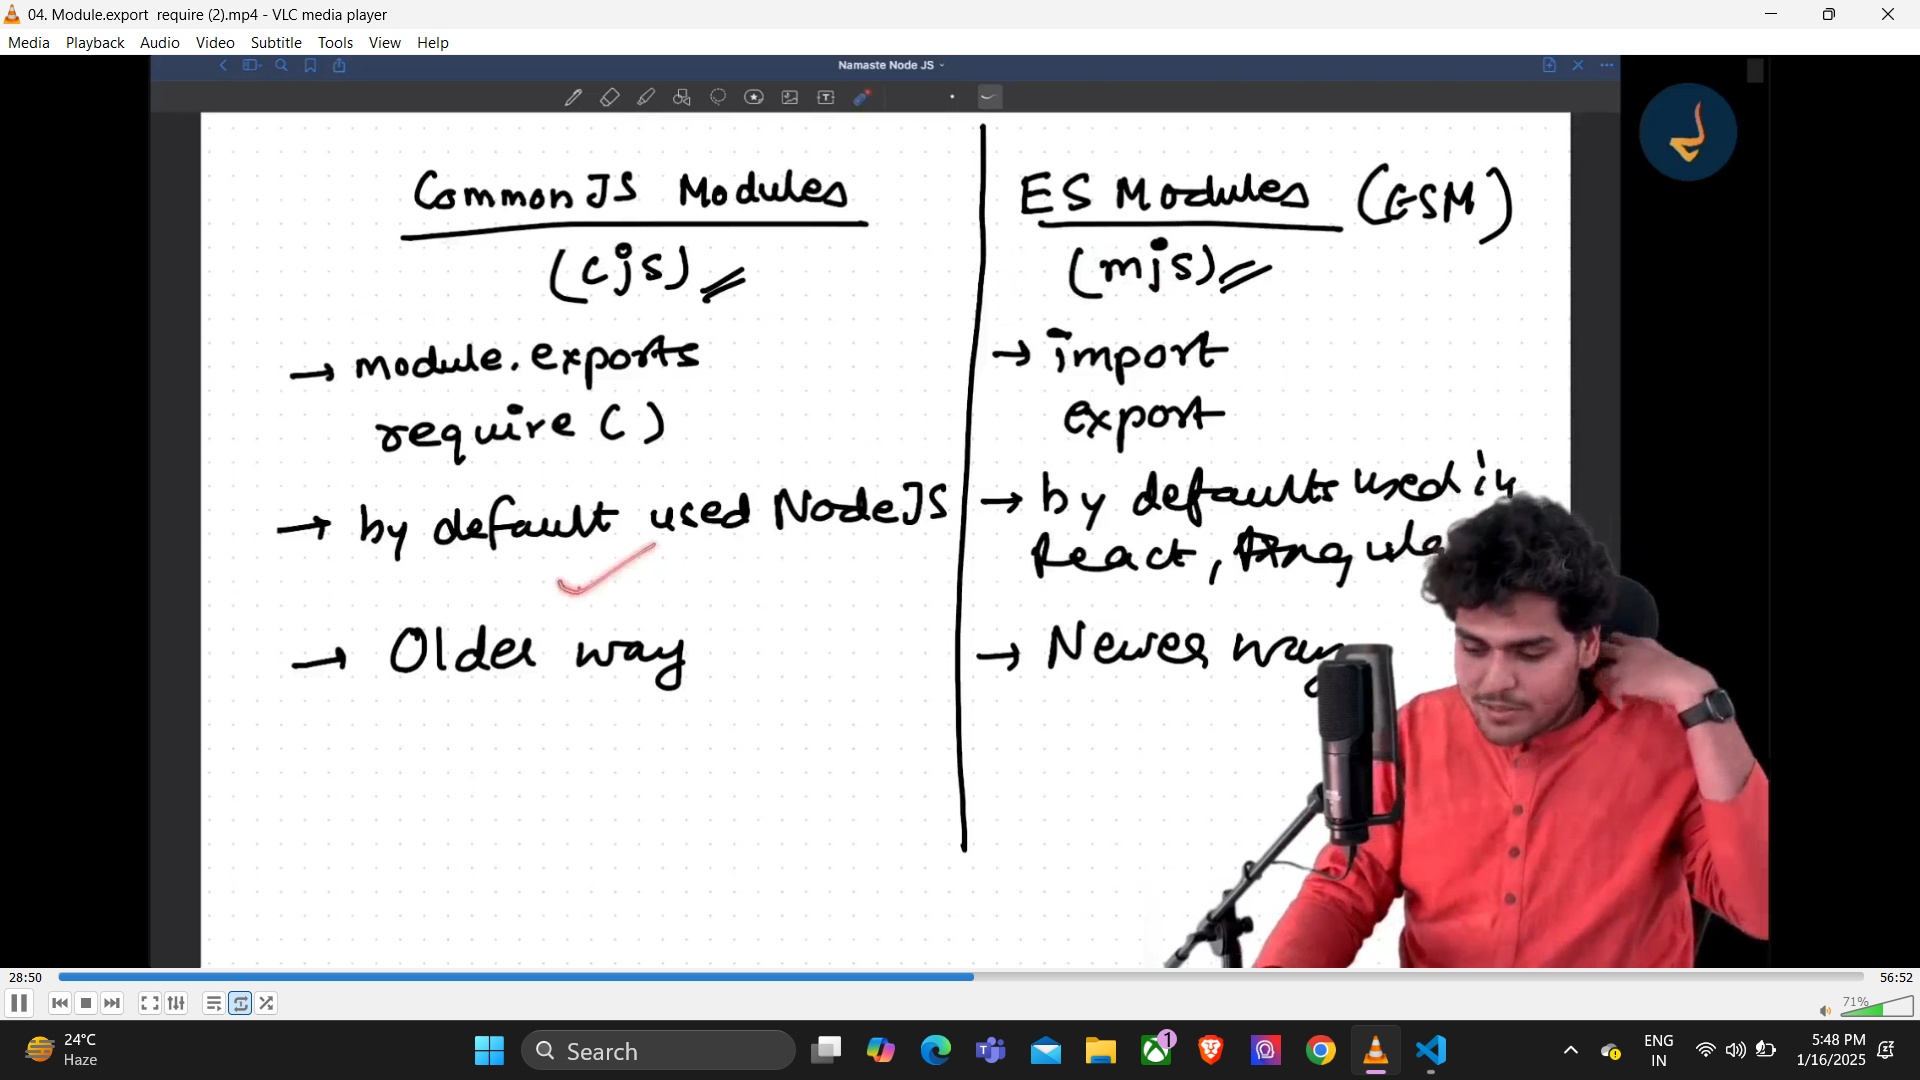 04. Module.export  require (2).mp4 - VLC media player
Media Playback Audio Video Subtitle Tools View Help
Namaste Node JS
CommonJS Modules
(cjs)
→ module.exports
require ( )
→ by default used NodeJS
→ Older way
ES Modules (ESM)
(mjs)
→ import
export
→ by default used in
React, Angula
→ Newer way
28:50
56:52
71%
24°C
Haze
Search
1
ENG
IN
5:48 PM
1/16/2025